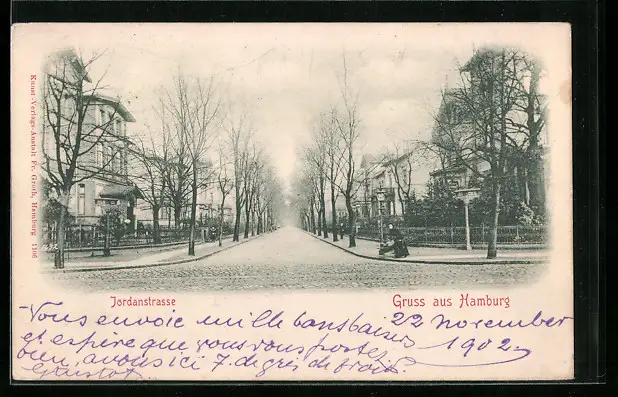 Kunst-Verlags-Anstalt Fr. Groth, Hamburg 1106
Jordanstrasse
Gruss aus Hamburg
Vous envoie mille bons baisers 22 November
et espère que vous vous portez 1902
bien, avons ici 7 degrés de froid.